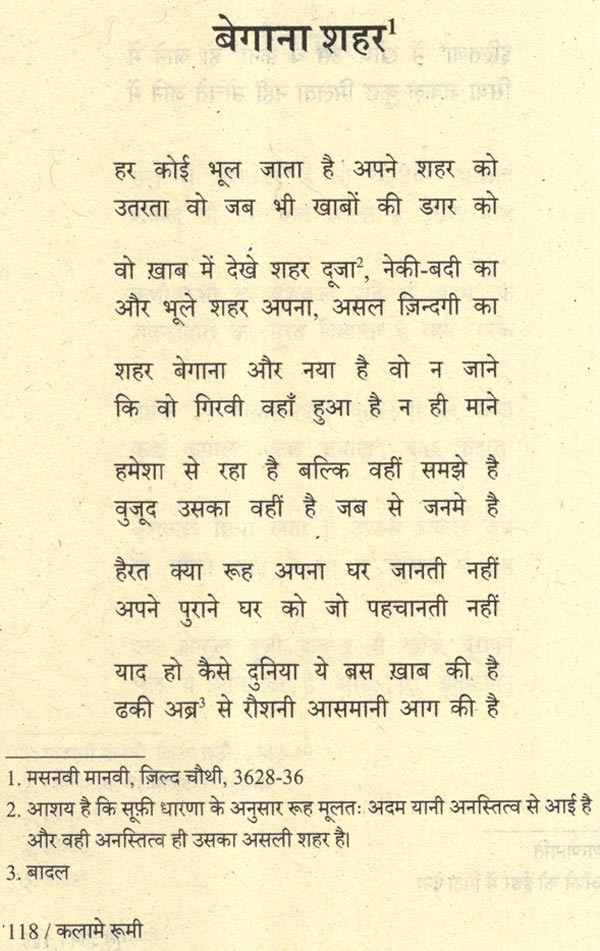 बेगाना शहर¹
हर कोई भूल जाता है अपने शहर को
उतरता वो जब भी खाबों की डगर को
वो ख़ाब में देखे शहर दूजा², नेकी-बदी का
और भूले शहर अपना, असल ज़िन्दगी का
शहर बेगाना और नया है वो न जाने
कि वो गिरवी वहाँ हुआ है न ही माने
हमेशा से रहा है बल्कि वहीं समझे है
वुजूद उसका वहीं है जब से जनमे है
हैरत क्या रूह अपना घर जानती नहीं
अपने पुराने घर को जो पहचानती नहीं
याद हो कैसे दुनिया ये बस ख़ाब की है
ढकी अब्र³ से रौशनी आसमानी आग की है
1. मसनवी मानवी, ज़िल्द चौथी, 3628-36
2. आशय है कि सूफ़ी धारणा के अनुसार रूह मूलतः अदम यानी अनस्तित्व से आई है
और वही अनस्तित्व ही उसका असली शहर है।
3. बादल
118 / कलामे रूमी